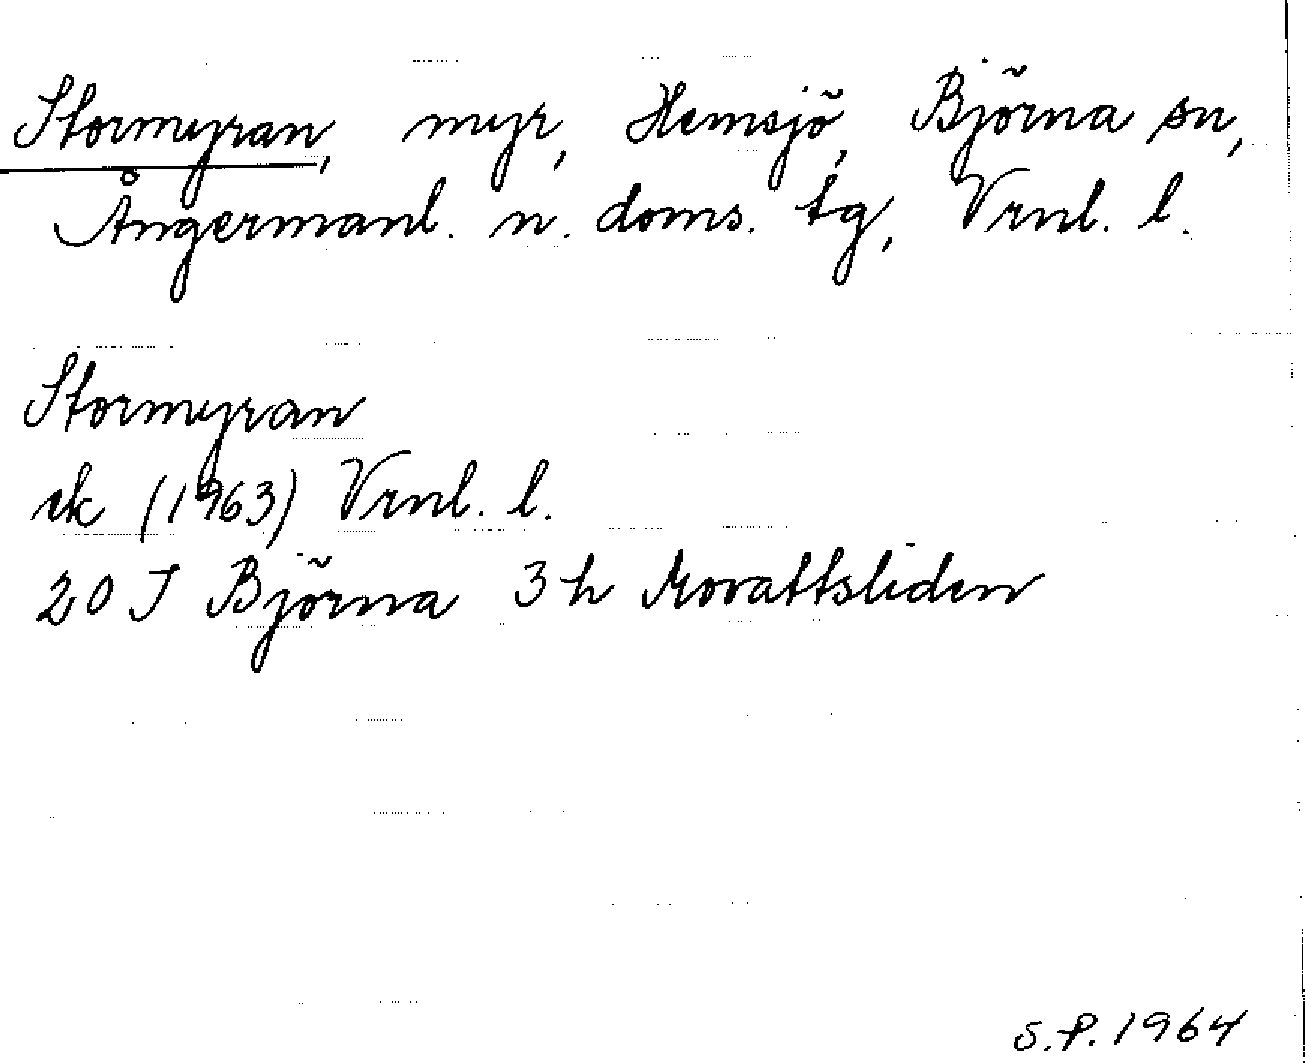 Stormyran, myr, Hemsjö, Björna sn,
Ångermanl. n. doms. tg, Vrnl. l.
Stormyran
ek (1963) Vrnl. l.
20 J Björna 3 h Movattsliden
S.P. 1964